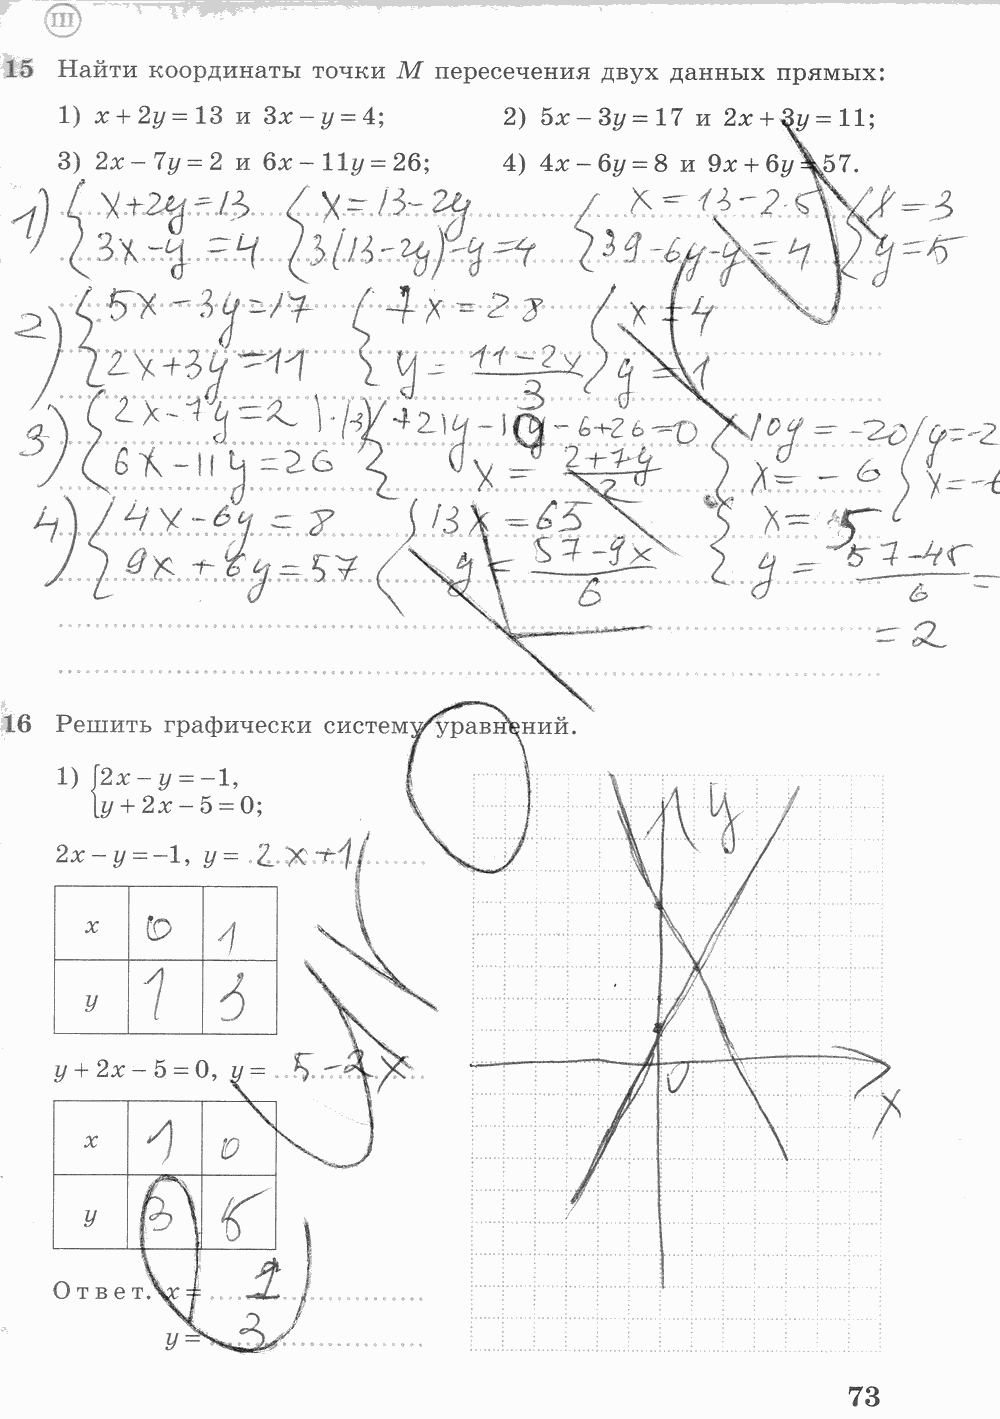 III
15 Найти координаты точки M пересечения двух данных прямых:
1) x + 2y = 13 и 3x − y = 4; 2) 5x − 3y = 17 и 2x + 3y = 11;
3) 2x − 7y = 2 и 6x − 11y = 26; 4) 4x − 6y = 8 и 9x + 6y = 57.
1) { x+2y=13 { x=13-2y { x=13-2·5 { x=3
3x-y=4 3(13-2y)-y=4 39-6y-y=4 y=5
2) { 5x-3y=17 { 7x=28 { x=4
2x+3y=11 y= 11-2x / 3 y=1
3) { 2x-7y=2 |·(3) { +21y-11y-6+26=0 { 10y=-20 { y=-2
6x-11y=26 x= 2+7y / 2 x=-6 x=-6
4) { 4x-6y=8 { 13x=65 { x=5
9x+6y=57 y= 57-9x / 6 y= 57-45 / 6 =
=2
16 Решить графически систему уравнений.
1) { 2x − y = −1,
y + 2x − 5 = 0;
2x − y = −1, y = 2x+1
x 0 1
y 1 3
y + 2x − 5 = 0, y = 5-2x
x 1 0
y 3 5
Ответ. x = 1
y = 3
y
0
x
73